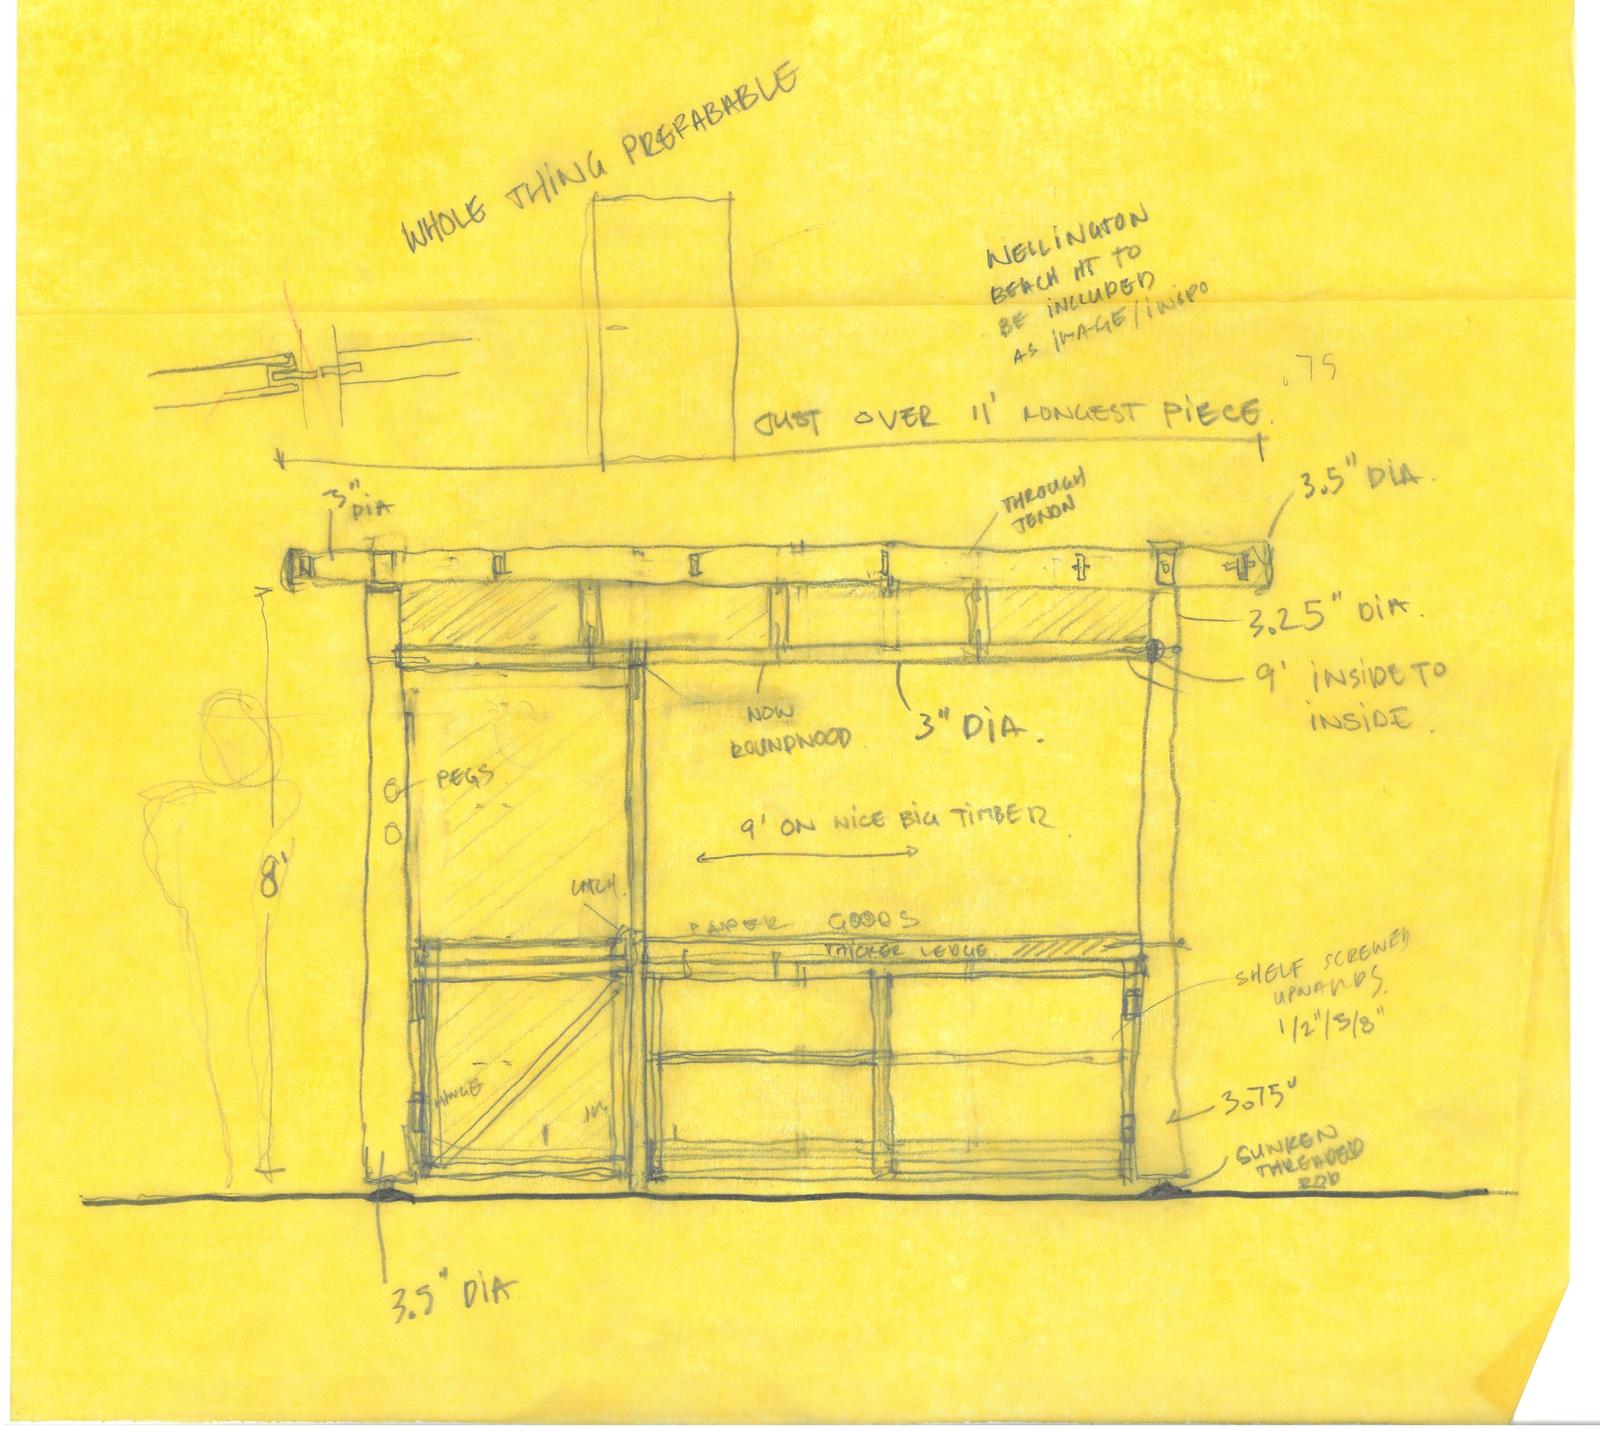 WHOLE THING PREFABABLE
WELLINGTON
BEACH HT TO
BE INCLUDED
AS IMAGE/INSPO
.75
JUST OVER 11' LONGEST PIECE.
3" DIA
THROUGH
TENON
3.5" DIA.
3.25" DIA.
9' INSIDE TO
INSIDE.
NOW
ROUNDWOOD.
3" DIA.
PEGS
9' ON NICE BIG TIMBER.
8'
LATCH.
PAPER GOODS
THICKER LEDGE
SHELF SCREWED
UPWARDS.
1/2"/5/8"
HINGE
3.75"
SUNKEN
THREADED
ROD
3.5" DIA